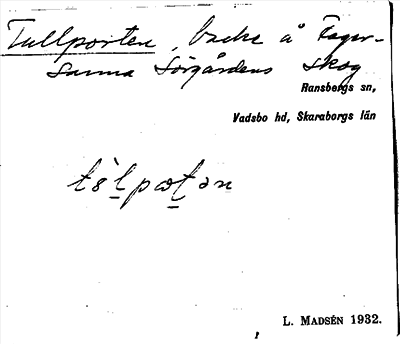 Tullporten, backe å Fager-
sanna Sörgårdens skog
Ransbergs sn,
Vadsbo hd, Skaraborgs län
L. MADSÉN 1932.